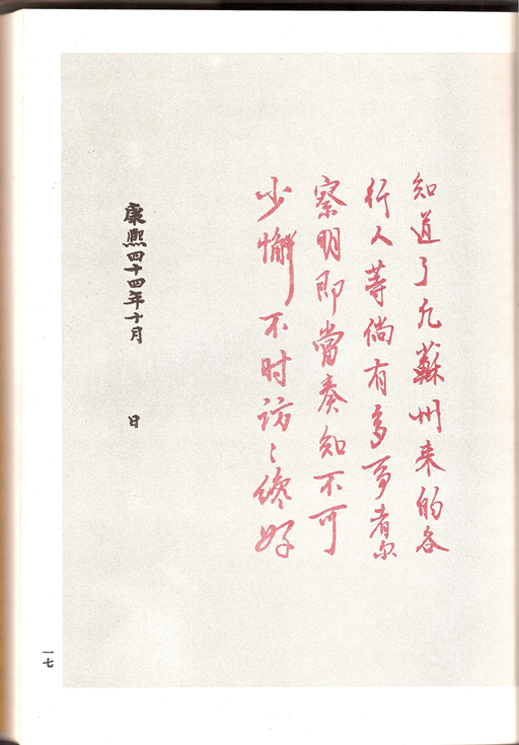 知道了凡蘇州来的各
行人等倘有多事者尔
察明即當奏知不可
少懈不时访〻终好
康熙四十四年十月　日
一七